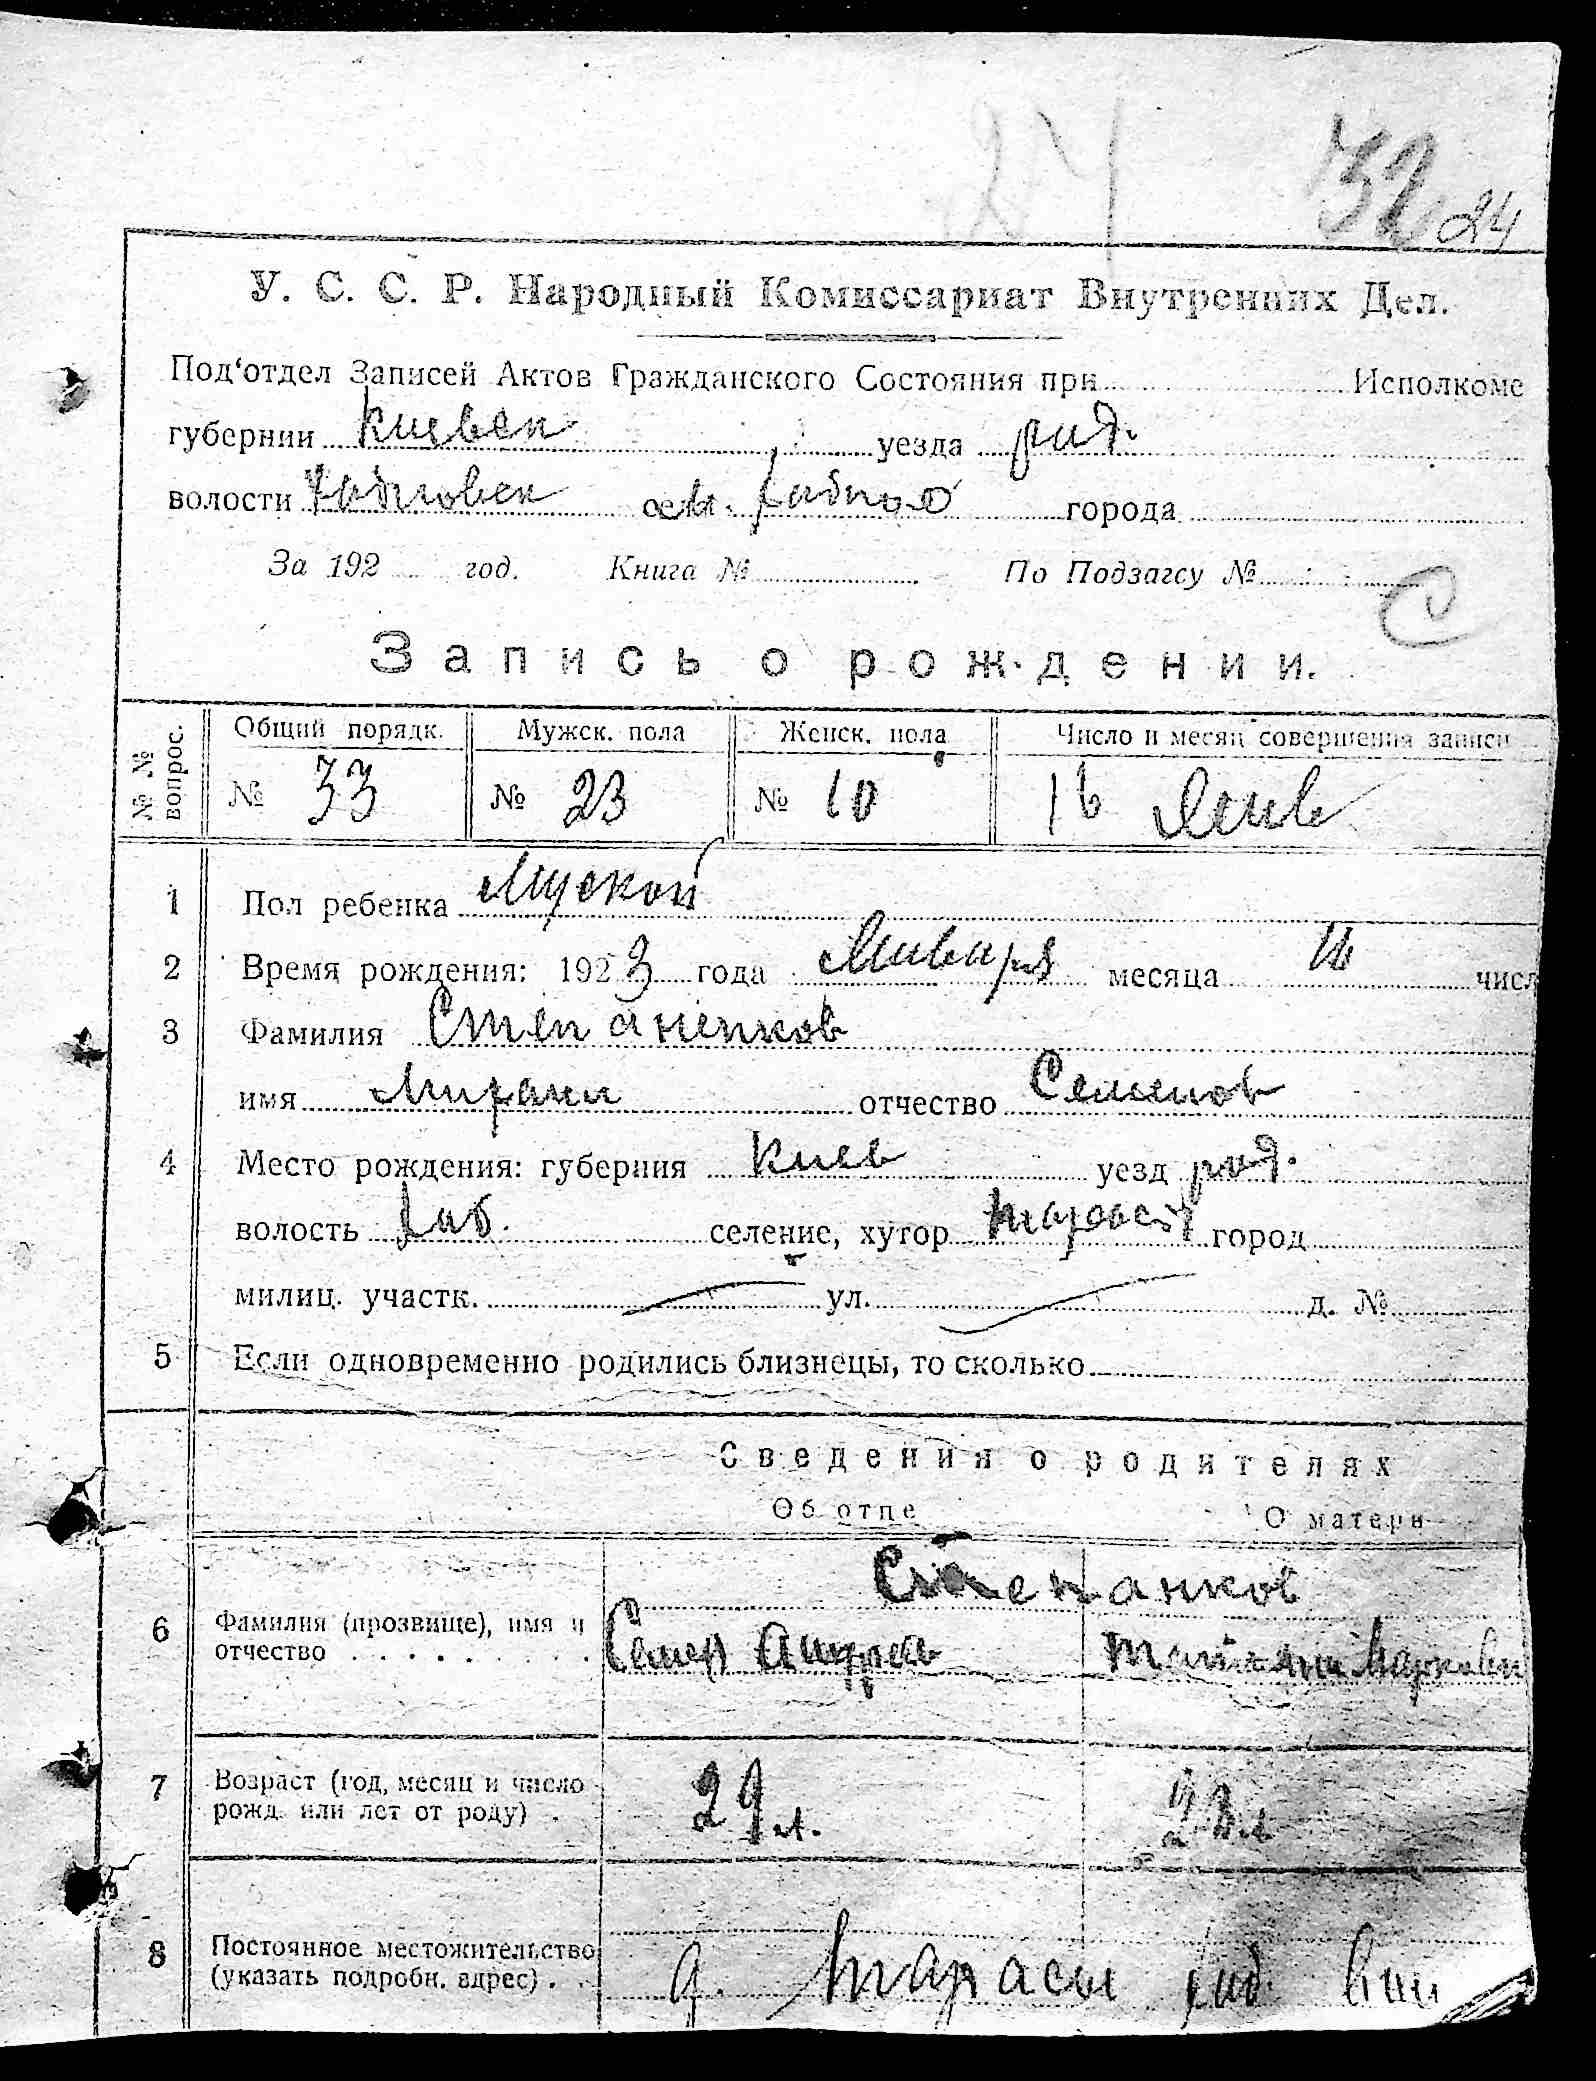 24
32 24
У. С. С. Р. Народный Комиссариат Внутренних Дел.
Под‘отдел Записей Актов Гражданского Состояния при Исполкоме
губернии Киевск уезда рад.
волости сел. города
За 192 год. Книга № По Подзагсу №
С
Запись о рождении.
№ № вопрос. Общий порядк. Мужск. пола Женск. пола Число и месяц совершения записи
№ 33 № 23 № 10 16 Янв
1 Пол ребенка Муской
2 Время рождения: 1923 года Января месяца 16 числ
3 Фамилия Степаненков
имя отчество Семенов
4 Место рождения: губерния Киев уезд рад.
волость Раб. селение, хутор город
милиц. участк. ул. д. №
5 Если одновременно родились близнецы, то сколько
Сведения о родителях
Об отце О матери
Степанков
6 Фамилия (прозвище), имя и Семен Андреев Татьяна Маркови
отчество
7 Возраст (год, месяц и число 29 л. 23 л
рожд. или лет от роду)
8 Постоянное местожительство д. Тарасы
(указать подробн. адрес)